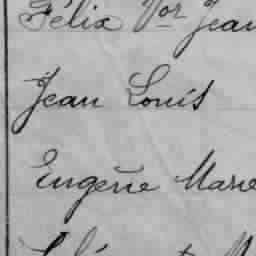 Félix Vor Jean
Jean Louis
Eugène Marie